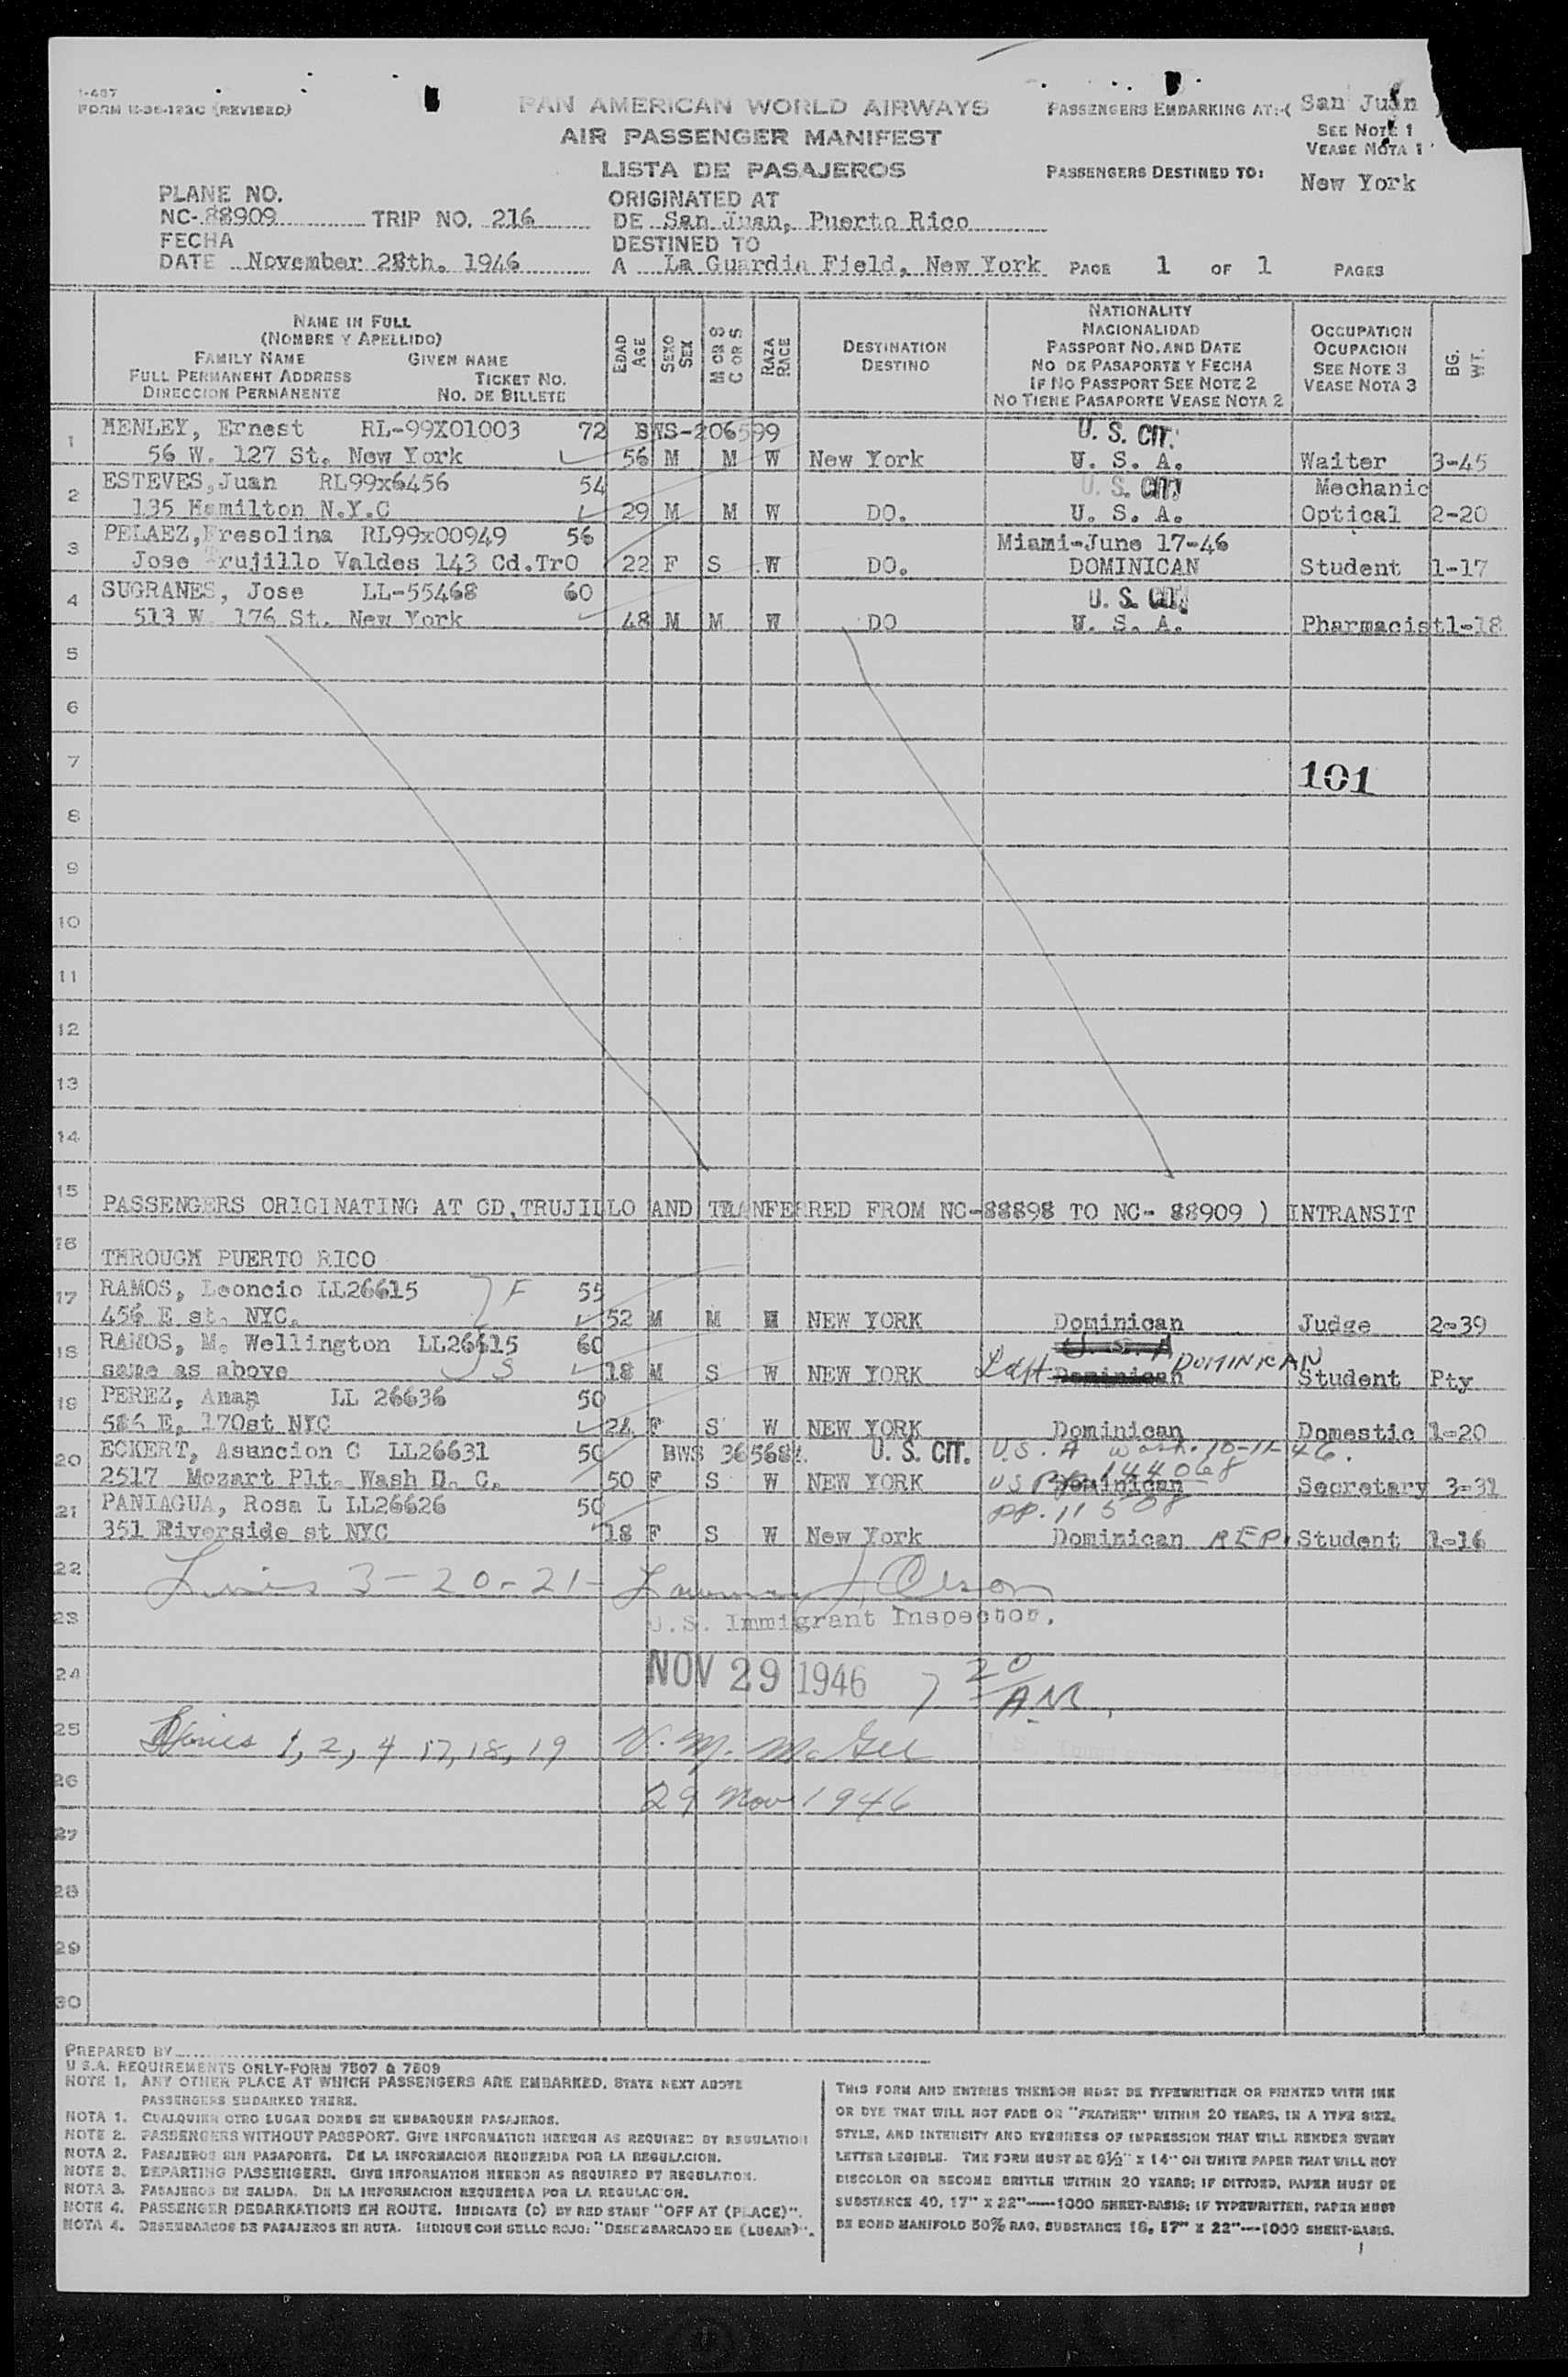 I-487
FORM II-36-122C (REVISED)
PAN AMERICAN WORLD AIRWAYS
AIR PASSENGER MANIFEST
LISTA DE PASAJEROS
PASSENGERS EMBARKING AT:-( San Juan )
SEE NOTE 1
VEASE NOTA 1
PASSENGERS DESTINED TO: New York
PLANE NO.
NC-88909 TRIP NO. 216
ORIGINATED AT
DE San Juan, Puerto Rico
FECHA
DATE November 28th. 1946
DESTINED TO
A La Guardia Field, New York PAGE 1 OF 1 PAGES
NAME IN FULL
(NOMBRE Y APELLIDO)
FAMILY NAME GIVEN NAME
FULL PERMANENT ADDRESS TICKET NO.
DIRECCION PERMANENTE NO. DE BILLETE
EDAD AGE
SEXO SEX
M OR S C OR S
RAZA RACE
DESTINATION
DESTINO
NATIONALITY
NACIONALIDAD
PASSPORT NO. AND DATE
NO DE PASAPORTE Y FECHA
IF NO PASSPORT SEE NOTE 2
NO TIENE PASAPORTE VEASE NOTA 2
OCCUPATION
OCUPACION
SEE NOTE 3
VEASE NOTA 3
BG. WT.
1 HENLEY, Ernest RL-99X01003 72 BWS-206599 U. S. CIT.
56 W. 127 St. New York 56 M M W New York U. S. A. Waiter 3-45
2 ESTEVES, Juan RL99x6456 54 U. S. CIT. Mechanic
135 Hamilton N.Y.C 29 M M W DO. U. S. A. Optical 2-20
3 PELAEZ, Fresolina RL99x00949 56 Miami-June 17-46
Jose Trujillo Valdes 143 Cd.TrO 22 F S W DO. DOMINICAN Student 1-17
4 SUGRANES, Jose LL-55468 60 U. S. CIT.
513 W. 176 St. New York 48 M M W DO U. S. A. Pharmacist 1-18
5
6
7 101
8
9
10
11
12
13
14
15 PASSENGERS ORIGINATING AT CD. TRUJILLO AND TRANFERRED FROM NC-88898 TO NC- 88909 ) INTRANSIT
16 THROUGH PUERTO RICO
17 RAMOS, Leoncio LL26615 F 55
456 E st. NYC. 52 M M W NEW YORK Dominican Judge 2-39
18 RAMOS, M. Wellington LL26615 60 U. S. A
same as above S 18 M S W NEW YORK Dominican DOMINICAN Student Pty
19 PEREZ, Anag LL 26636 50
586 E, 170st NYC 24 F S W NEW YORK Dominican Domestic 1-20
20 ECKERT, Asuncion C LL26631 50 BWS 365684 U. S. CIT. U.S. A Wash. 10-11-46.
2517 Mozart Plt. Wash D. C. 50 F S W NEW YORK US PP. 144068 Dominican Secretary 3-31
21 PANIAGUA, Rosa L LL26626 50 PP. 11508
351 Riverside st NYC 18 F S W New York Dominican REP. Student 1-16
22 Lines 3-20-21- Olson
23 U.S. Immigrant Inspector.
24 NOV 29 1946 7 20 AM.
25 Lines 1, 2, 4 17, 18, 19 V. M. McGee
26 29 Nov 1946
27
28
29
30
PREPARED BY
U.S.A. REQUIREMENTS ONLY-FORM 7507 & 7509
NOTE 1. ANY OTHER PLACE AT WHICH PASSENGERS ARE EMBARKED, STATE NEXT ABOVE
PASSENGERS EMBARKED THERE.
NOTA 1. CUALQUIER OTRO LUGAR DONDE SE EMBARQUEN PASAJEROS.
NOTE 2. PASSENGERS WITHOUT PASSPORT. GIVE INFORMATION HEREON AS REQUIRED BY REGULATION
NOTA 2. PASAJEROS SIN PASAPORTE. DE LA INFORMACION REQUERIDA POR LA REGULACION.
NOTE 3. DEPARTING PASSENGERS. GIVE INFORMATION HEREON AS REQUIRED BY REGULATION.
NOTA 3. PASAJEROS DE SALIDA. DE LA INFORMACION REQUERIDA POR LA REGULACION.
NOTE 4. PASSENGER DEBARKATIONS EN ROUTE. INDICATE (D) BY RED STAMP "OFF AT (PLACE)".
NOTA 4. DESEMBARCOS DE PASAJEROS EN RUTA. INDIQUE CON SELLO ROJO: "DESEMBARCADO EN (LUGAR)".
THIS FORM AND ENTRIES THEREON MUST BE TYPEWRITTEN OR PRINTED WITH INK
OR DYE THAT WILL NOT FADE OR "FEATHER" WITHIN 20 YEARS, IN A TYPE SIZE,
STYLE, AND INTENSITY AND EVENNESS OF IMPRESSION THAT WILL RENDER EVERY
LETTER LEGIBLE. THE FORM MUST BE 8½" X 14" ON WHITE PAPER THAT WILL NOT
DISCOLOR OR BECOME BRITTLE WITHIN 20 YEARS; IF DITTOED, PAPER MUST BE
SUBSTANCE 40, 17" X 22"----1000 SHEET-BASIS; IF TYPEWRITTEN, PAPER MUST
BE BOND MANIFOLD 50% RAG, SUBSTANCE 16, 17" X 22"---1000 SHEET-BASIS.